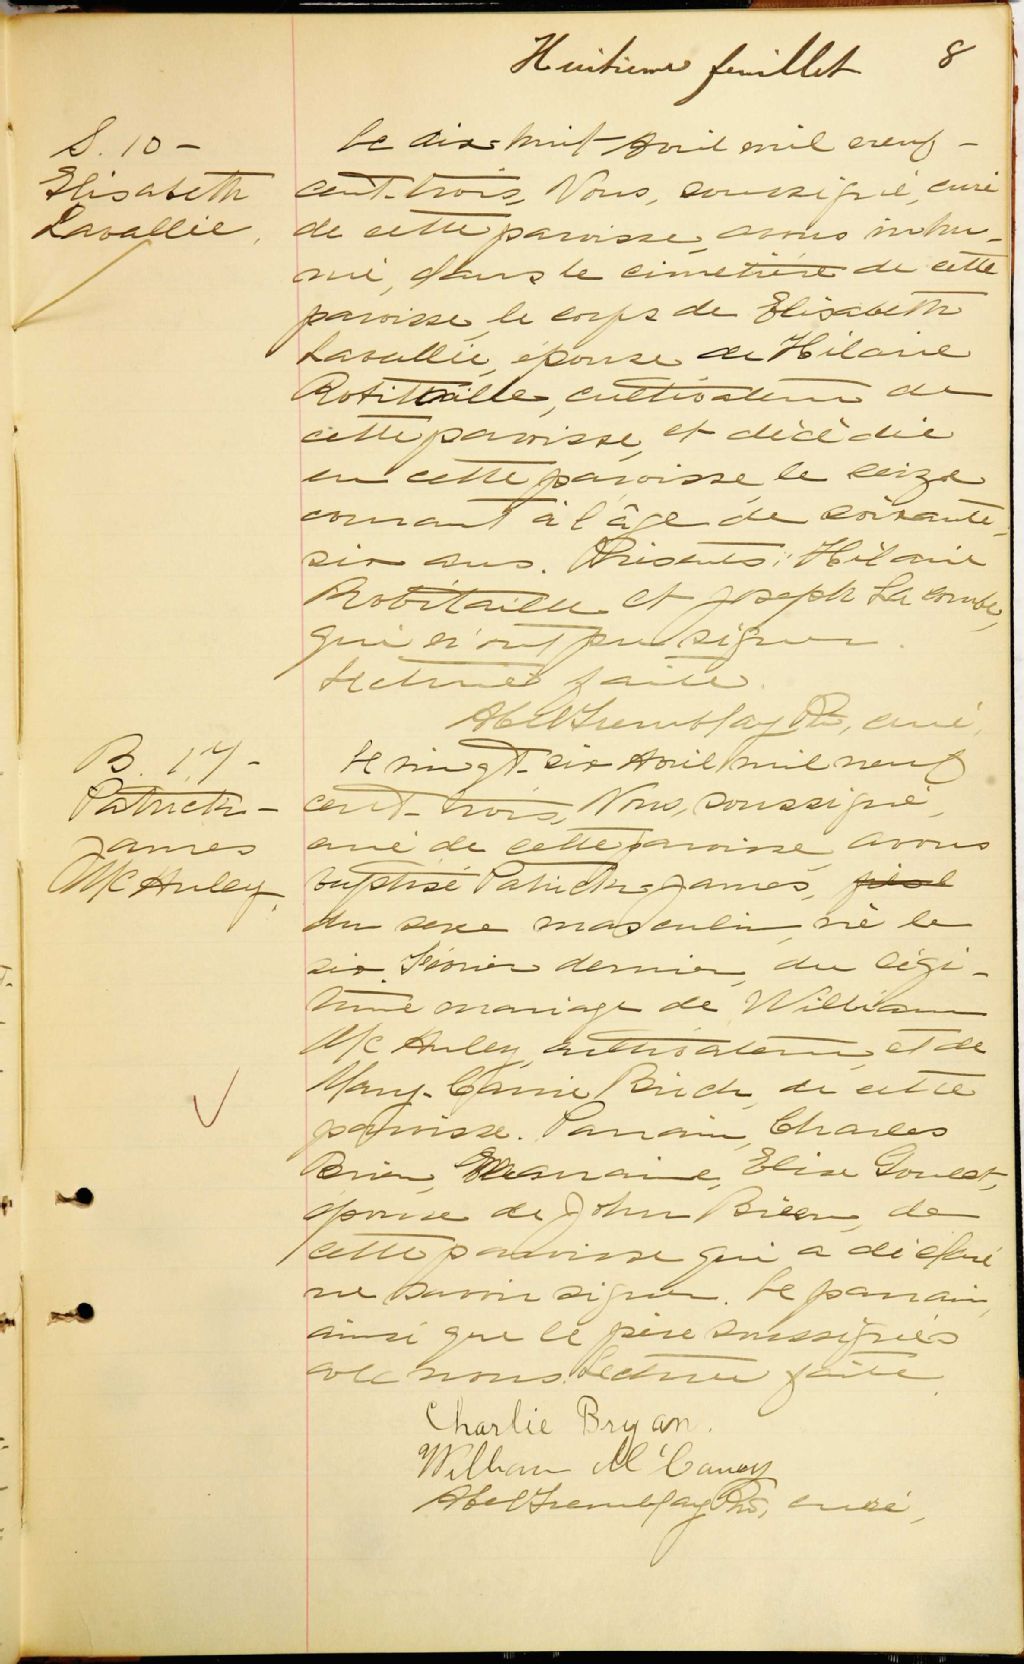 Huitieme feuillet 8
S. 10 -
Elisabeth
Lavallée,
Le dix-huit Avril mil neuf -
cent-trois, Nous, soussigné, curé
de cette paroisse, avons inhu-
mé, dans le cimetière de cette
paroisse, le corps de Elisabeth
Lavallée, épouse de Hilaire
Robitaille, cultivateur de
cette paroisse, et décédée
en cette paroisse, le seize
courant à l'âge de soixante-
six ans. Présents: Hilaire
Robitaille et Joseph Lacombe,
qui n'ont pu signer.
Lecture faite.
Abel Tremblay Ptre, curé,
B. 17 -
Patrick -
James
McAuley,
Le vingt-six Avril mil neuf
cent-trois, Nous, soussigné,
curé de cette paroisse, avons
baptisé Patrick-James,
du sexe masculin, né le
six Février dernier, du légi-
time mariage de William
McAuley, cultivateur, et de
Mary-Carrie de cette
paroisse. Parrain, Charles
Brien, Marraine, Elise Goulet,
épouse de John Brien, de
cette paroisse qui a déclaré
ne savoir signer. Le parrain,
ainsi que le père soussignés
avec nous. Lecture faite.
Charlie Bryan.
William
Abel Tremblay Ptre, curé,